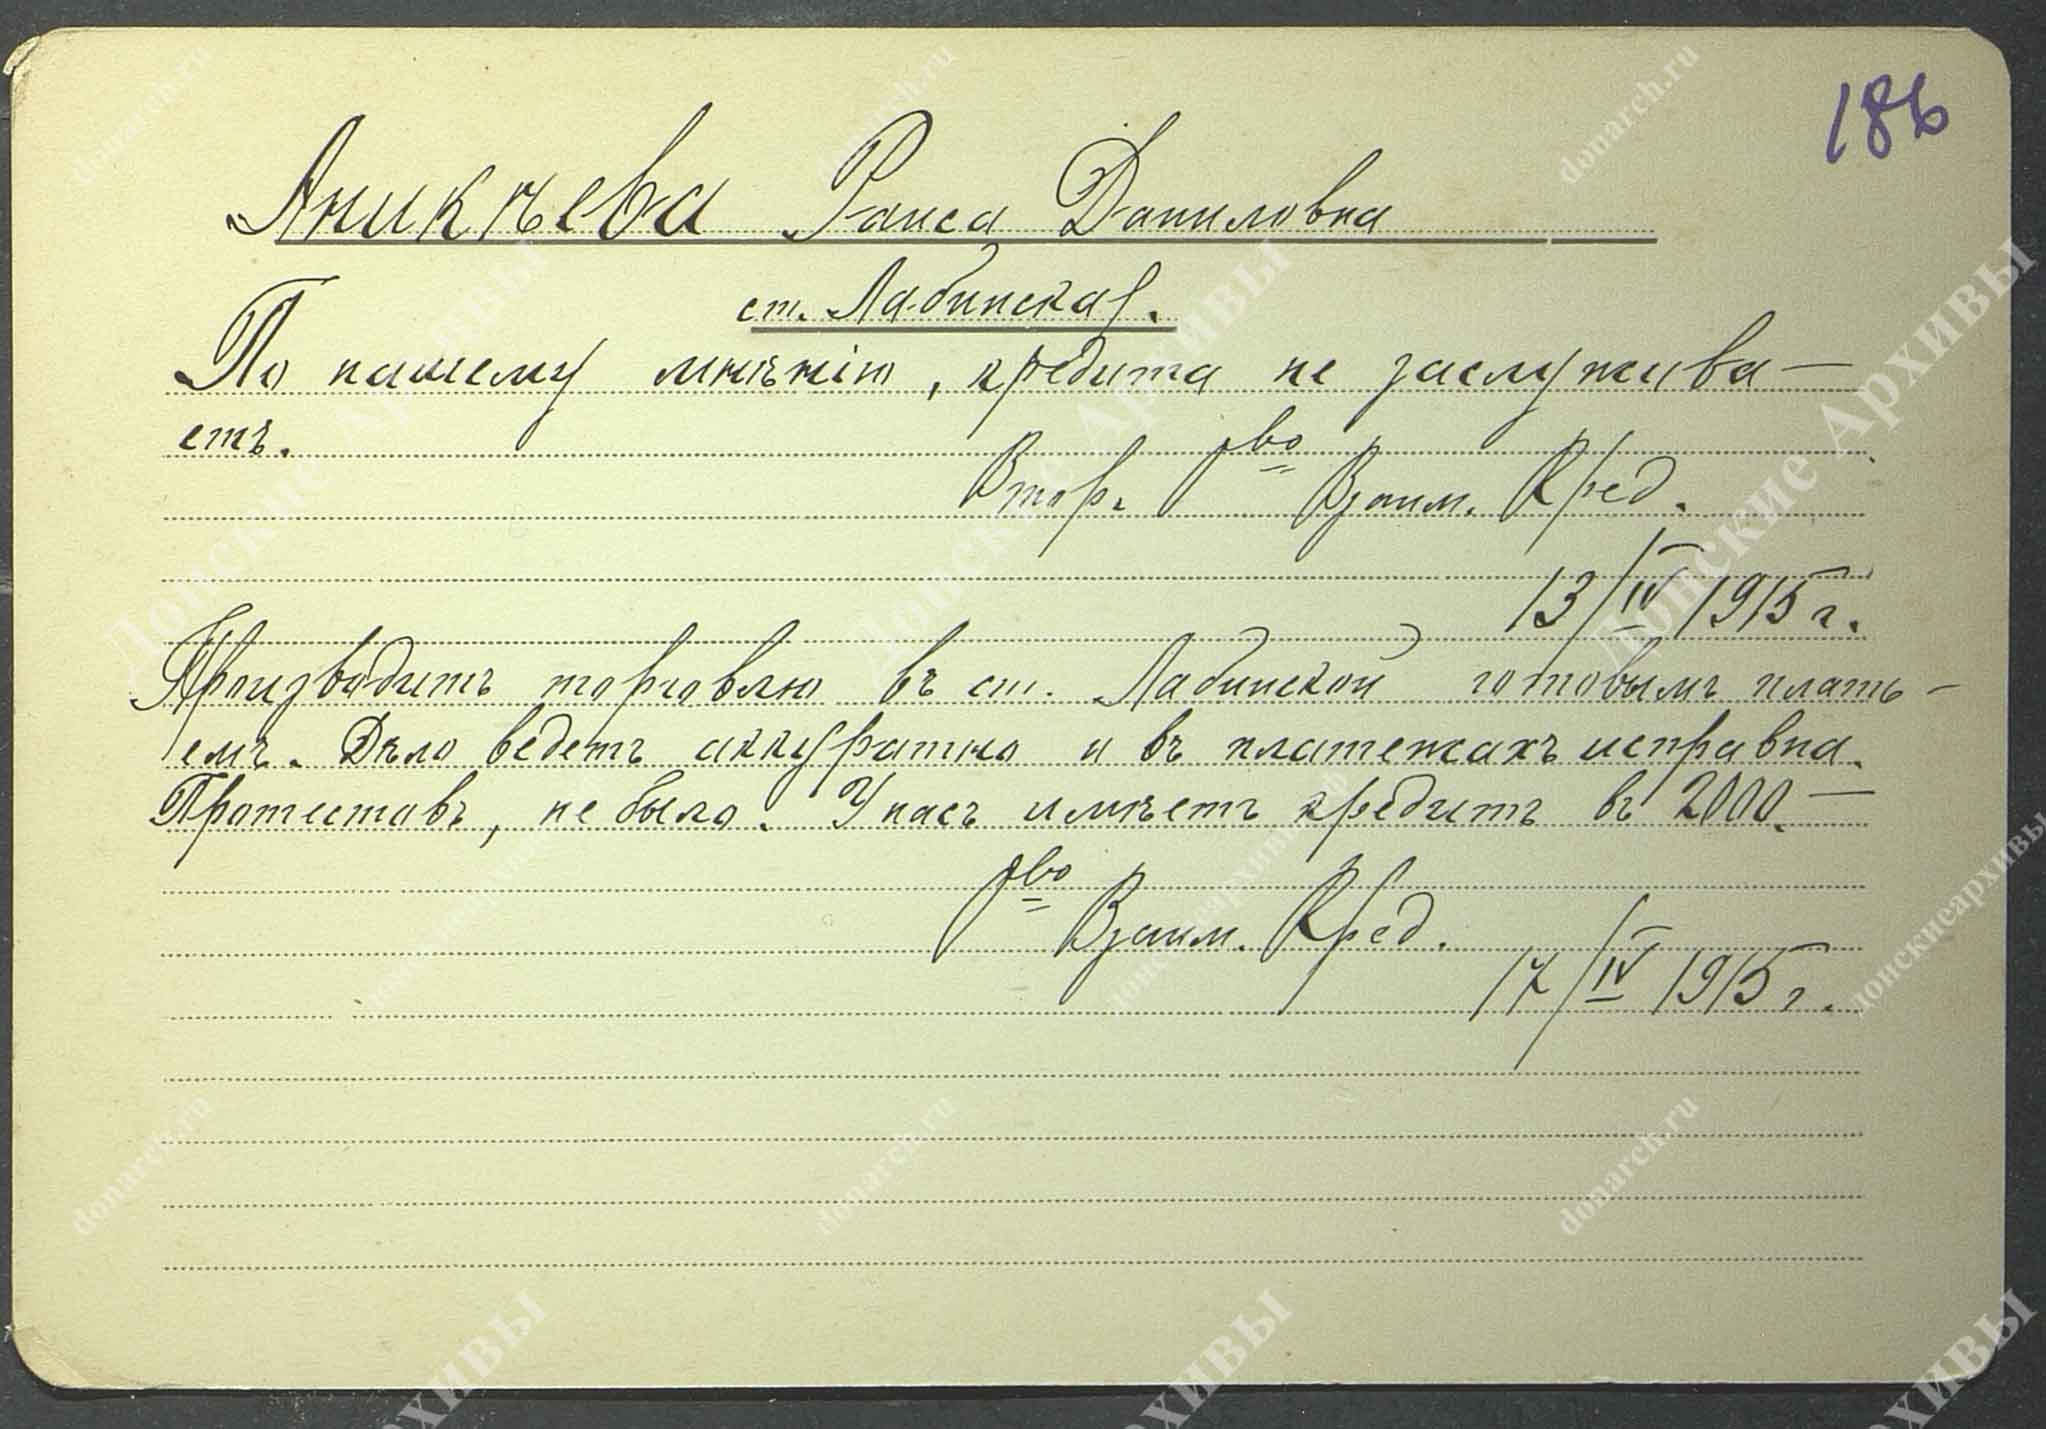 186
Аникѣева Раиса Даниловна
ст. Лабинская.
По нашему мнѣнію, кредита не заслужива-
етъ.
Втор. О-во Взаим. Кред.
13/IV 1915 г.
Производитъ торговлю въ ст. Лабинской готовымъ плать-
емъ. Дѣло ведетъ аккуратно и въ платежахъ исправна.
Протестовъ, не было. У насъ имѣетъ кредитъ въ 2000.—
О-во Взаим. Кред.
17/IV 1915 г.
Донские Архивы
donarch.ru
донскиеархивы